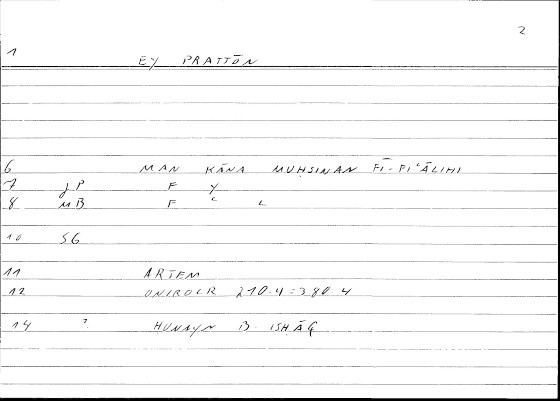 2
1 EY PRATTŌN
6 MAN KĀNA MUḤSINAN FĪ-FIʿĀLIHI
7 gP F Y
8 MB F ʿ L
10 SG
11 ARTEM
12 ONIROCR 210.4 = 380.4
14 ? HUNAYN B. ISHĀQ